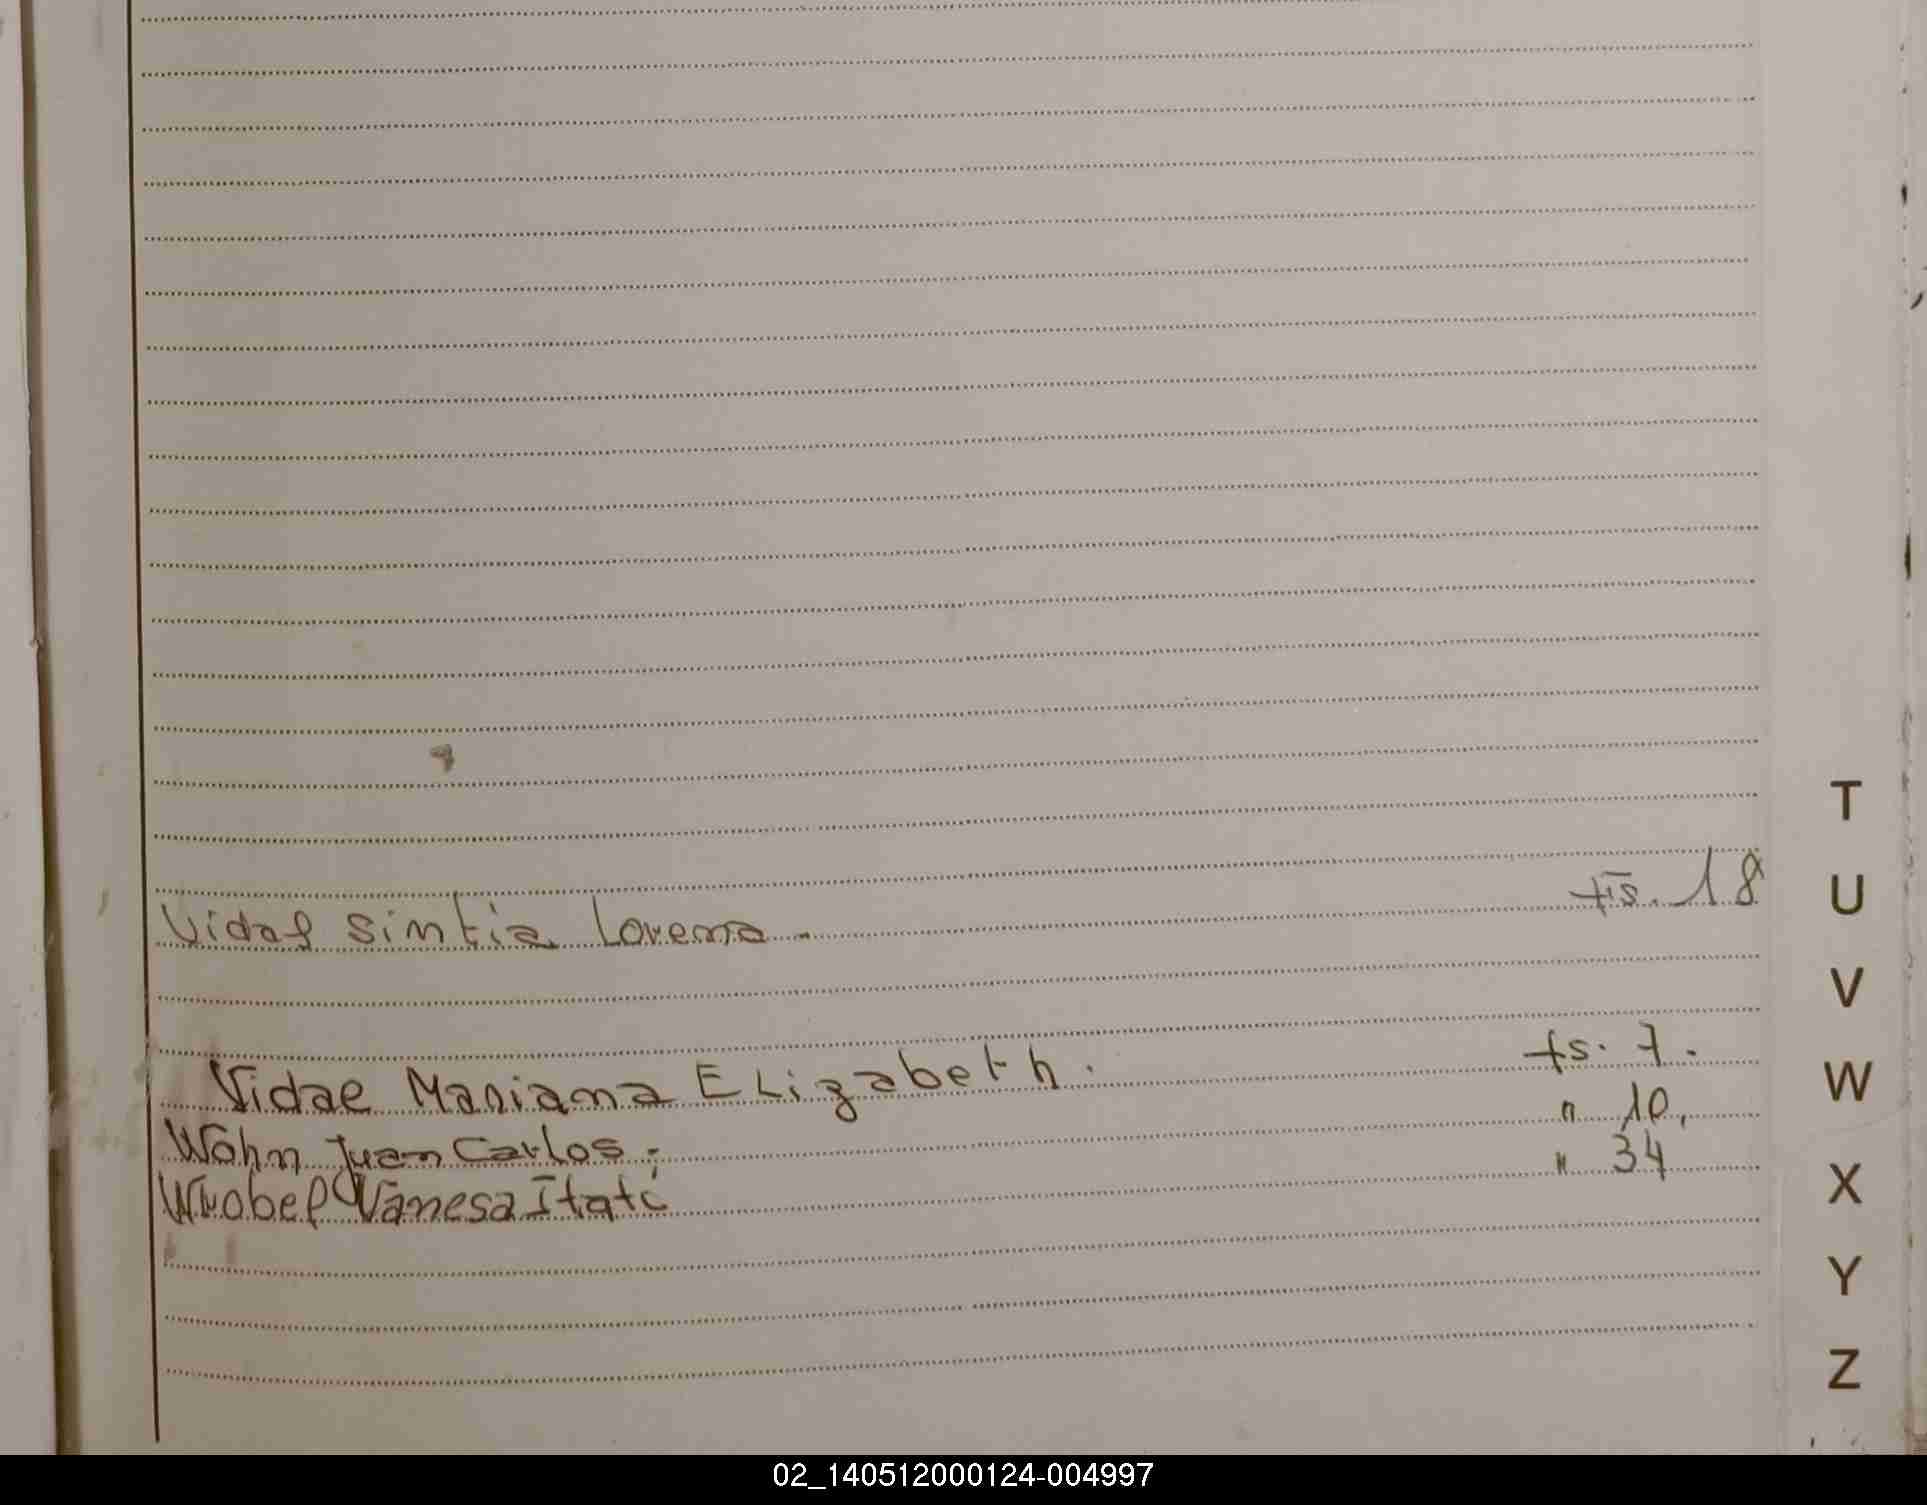 Vidal Sintia Lorena. fs. 18
Vidal Mariana ELizabeth. fs. 7.
Wohn Juan Carlos. " 10.
Wrobel Vanesa Itatí " 34
T
U
V
W
X
Y
Z
02_140512000124-004997